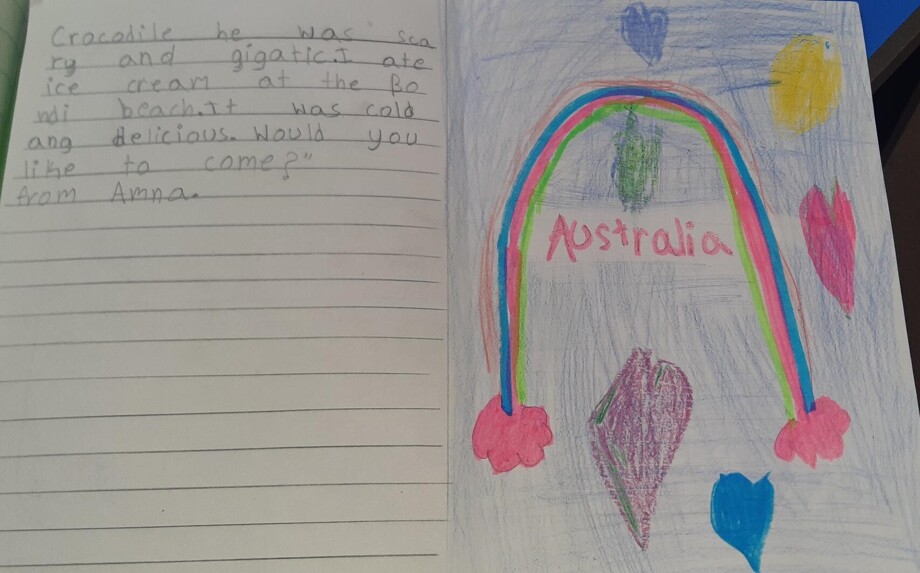 Crocodile he was sca
ry and gigatic.I ate
ice cream at the Bo
ndi beach.It was cold
ang delicious. Would you
like to come?"
from Amna.
Australia